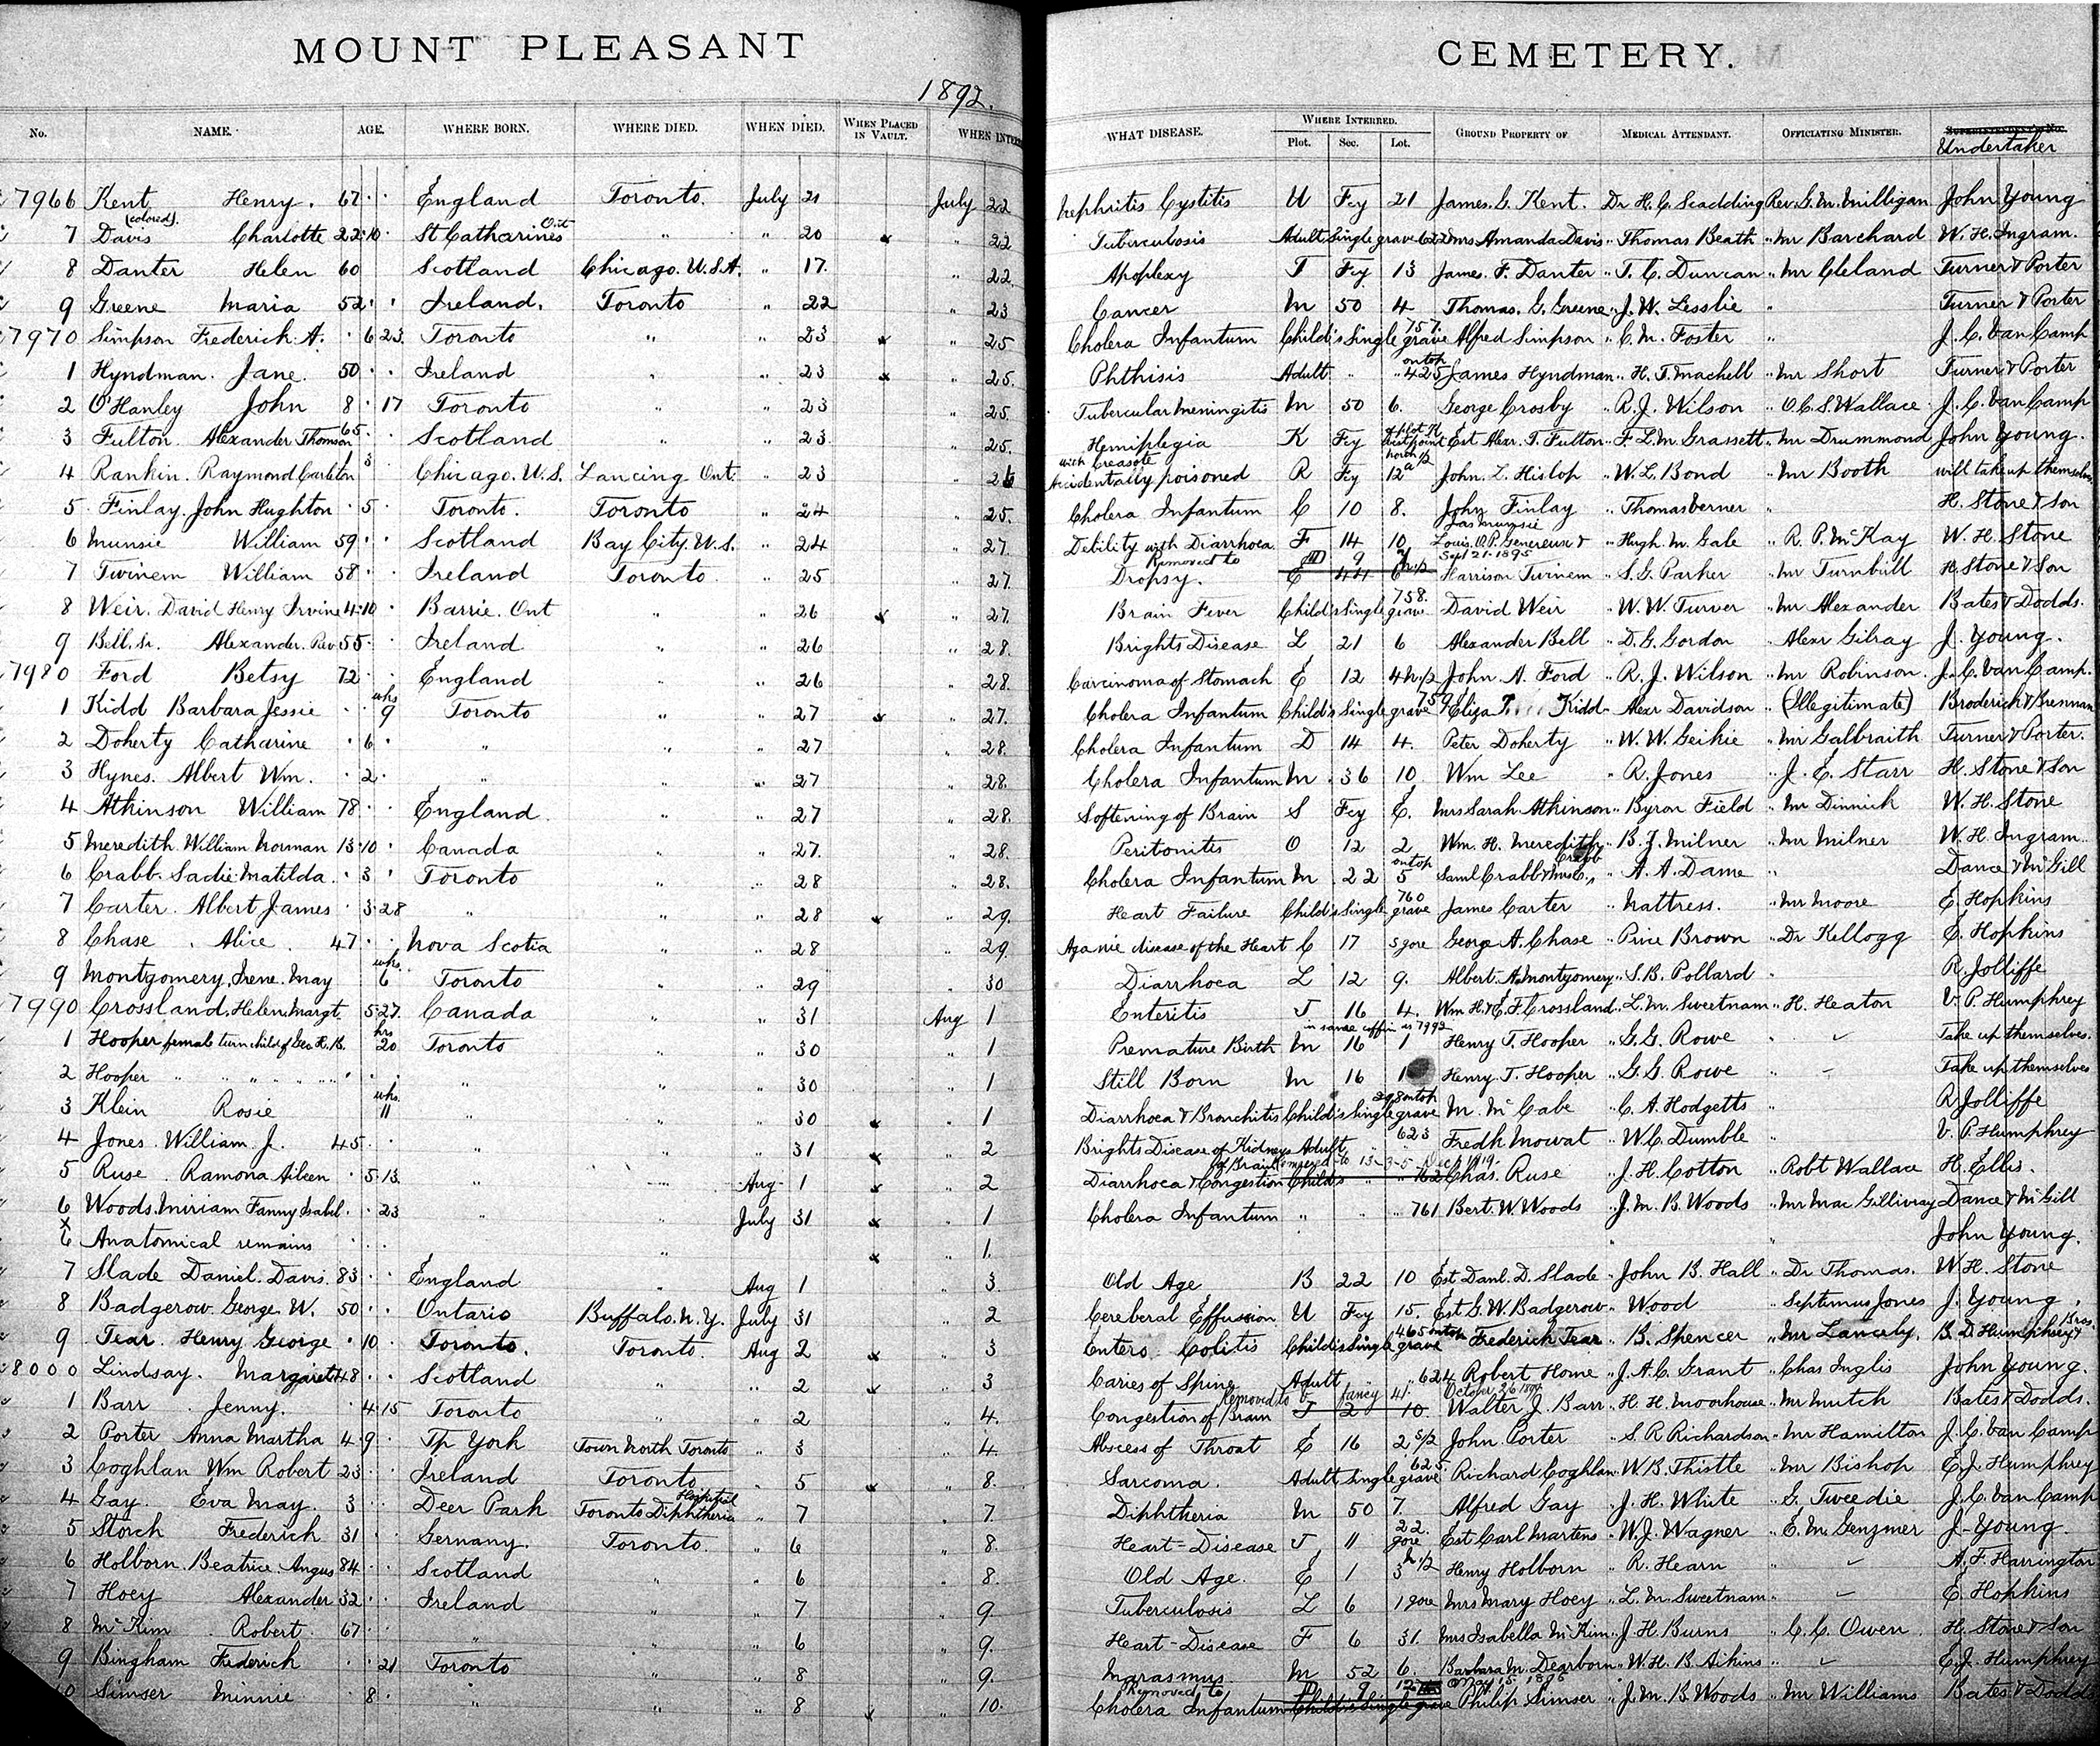 MOUNT PLEASANT CEMETERY.
1892.
No. NAME. AGE. WHERE BORN. WHERE DIED. WHEN DIED. WHEN PLACED IN VAULT. WHEN INTER WHAT DISEASE. WHERE INTERRED. Plot. Sec. Lot. GROUND PROPERTY OF MEDICAL ATTENDANT. OFFICIATING MINISTER. Undertaker
7966 Kent Henry. 67 England Toronto. July 21 July 22 Nephritis Cystitis U Fcy 21 James. G. Kent. Dr H. C. Scadding Rev. G. M. Milligan John Young
(colored).
7 Davis Charlotte 22 10 St Catharines Ont " " 20 x " 22 Tuberculosis Adult Single grave 622 Mrs Amanda Davis " Thomas Beath " Mr Barchard W. H. Ingram.
8 Danter Helen 60 Scotland Chicago. U.S.A. " 17. " 22 Apoplexy T Fcy 13 James. F. Danter " T. C. Duncan " Mr Cleland Turner & Porter
9 Greene Maria 52 Ireland. Toronto " 22 " 23 Cancer M 50 4 Thomas. G. Greene " J. W. Lesslie " Turner & Porter
7970 Simpson Frederick. A. 6 23 Toronto " " 23 x " 25 Cholera Infantum Child's Single grave 757. Alfred Simpson " C. M. Foster " J. C. Van Camp
1 Hyndman. Jane. 50 Ireland " " 23 x " 25. Phthisis Adult " " 425 on top James Hyndman " H. T. Machell " Mr Short Turner & Porter
2 O'Hanley John 8 17 Toronto " " 23 " 25. Tubercular Meningitis M 50 6. George Crosby " R. J. Wilson " O. C. S. Wallace J. C. Van Camp
3 Fulton. Alexander Thomson 65 Scotland " " 23. " 25. Hemiplegia K Fcy Est Alexr. T. Fulton " F. L. M. Grassett " Mr Drummond John Young.
4 Rankin. Raymond Carleton 3 Chicago. U.S. Lancing Ont. " 23 " 26 Accidentally poisoned with Creasote R Fcy 12a north 1/2 John. L. Hislop " W. L. Bond " Mr Booth will take up themselves
5 Finlay. John Hughton 5 Toronto. Toronto " 24 " 25. Cholera Infantum C 10 8. John Finlay " Thomas Verner " H. Stone & Son
6 Munsie William 59 Scotland Bay City. U.S. " 24 " 27. Debility with Diarrhoea F 14 10 Jas Munsie Louis. O. P. Genereux & " Hugh. M. Gale " R. P. McKay W. H. Stone
7 Twinem William 58 Ireland Toronto " 25 " 27. Dropsy. Removed to D 9 Sept 21. 1895 E 44 6 Harrison Twinem " S. G. Parker " Mr Turnbull H. Stone & Son
8 Weir. David Henry Irvine 4 10 Barrie. Ont " " 26 x " 27. Brain Fever Child's Single grave 758. David Weir " W. W. Turver " Mr Alexander Bates & Dodds.
9 Bell. Sr. Alexander. Rev 55 Ireland " " 26 " 28. Brights Disease L 21 6 Alexander Bell " D. G. Gordon " Alexr Gilray J. Young.
7980 Ford Betsy 72 England " " 26 " 28. Carcinoma of Stomach E 12 4 N.1/2 John A. Ford " R. J. Wilson " Mr Robinson. J. C. Van Camp.
1 Kidd Barbara Jessie 9 wks Toronto " " 27 x " 27. Cholera Infantum Child's Single grave 759 Eliza Kidd " Alexr Davidson " (Illegitimate) Broderick & Brennan
2 Doherty Catharine 6 " " " 27 " 28. Cholera Infantum D 14 4. Peter Doherty " W. W. Geikie " Mr Galbraith Turner & Porter.
3 Hynes. Albert Wm. 2 " " " 27 " 28. Cholera Infantum M 36 10 Wm Lee " R. Jones " J. E. Starr H. Stone & Son
4 Atkinson William 78 England. " " 27 " 28. Softening of Brain S Fcy E. Mrs Sarah Atkinson " Byron Field " Mr Dinnick W. H. Stone
5 Meredith. William Norman 13 10 Canada " " 27. " 28. Peritonitis O 12 2 Wm. H. Meredith " B. Z. Milner " Mr Milner W. H. Ingram.
6 Crabb. Sadie Matilda. 3 Toronto " " 28 " 28. Cholera Infantum M 22 5 on top Saml Crabb & Mrs C. Crabb " A. A. Dame " Dance & McGill
7 Carter. Albert James 3 28 " " " 28 x " 29. Heart Failure Child's Single grave 760 James Carter " Nattress. " Mr Moore E. Hopkins
8 Chase. Alice. 47 Nova Scotia " " 28 " 29. disease of the Heart C 17 5 gore George A. Chase " Price Brown " Dr Kellogg E. Hopkins
9 Montgomery, Irene. May 6 wks. Toronto " " 29 " 30 Diarrhoea L 12 9. Albert. A. Montgomery " S. B. Pollard " R. Jolliffe
7990 Crossland, Helen Margt. 5 27. Canada " " 31 Aug 1 Enteritis J 16 4. Wm H. & E. F. Crossland " L. M. Sweetnam " H. Heaton V. P. Humphrey
1 Hooper female twin child of Geo. R. B. 20 hrs Toronto " " 30 " 1 Premature Birth M 16 1 in same coffin as 7992 Henry T. Hooper " G. G. Rowe " Take up themselves.
2 Hooper " " " " " " " 30 " 1 Still Born M 16 1 Henry. T. Hooper " G. G. Rowe " Take up themselves
3 Klein Rosie 11 wks. " " " 30 x " 1 Diarrhoea & Bronchitis Child's Single grave 298 on top M. McCabe " C. A. Hodgetts " R Jolliffe
4 Jones. William. J. 45 " " " 31 x " 2 Brights Disease of Kidneys Adult " 623 Fredk Mowat " W. C. Dumble " V. P. Humphrey
5 Ruse. Ramona Aileen 5 13 " " Aug 1 x " 2 Diarrhoea & Congestion of Brain Removed to 13-3-5 Dec 1919. Child's " " 162 Chas. Ruse " J. H. Cotton " Robt Wallace H. Ellis.
6 Woods. Miriam Fanny Isabel. 23 " " July 31 x " 1 Cholera Infantum " " 761 Bert. W. Woods " J. M. B. Woods " Mr Mac Gillivray Dance & McGill
x 6 Anatomical remains " x " 1. " " John Young.
7 Slade Daniel. Davis. 83 England " Aug 1 " 3. Old Age B 22 10 Est Danl. D. Slade " John B. Hall " Dr Thomas. W. H. Stone
8 Badgerow. George. W. 50 Ontario Buffalo. N.Y. July 31 " 2 Cereberal Effusion U Fcy 15. Est G. W. Badgerow " Wood " Septimus Jones J. Young.
9 Tear. Henry George 10 Toronto. Toronto. Aug 2 x " 3 Entero Colitis Child's Single grave 465 on top Frederick Tear " B. Spencer " Mr Lanceley. B. D. Humphrey & Bros.
8000 Lindsay. Margaret 48 Scotland " " 2 x " 3 Caries of Spine Adult " " 624 Robert Home " J. A. C. Grant " Chas Inglis John Young.
1 Barr. Jenny. 4 15 Toronto " " 2 " 4. Congestion of Brain Removed to V fancy 41. October 26 T 2 10. Walter J. Barr " H. H. Moorhouse " Mr Mutch Bates & Dodds.
2 Porter Anna Martha 4 9 Tp York Town North Toronto " 3 " 4. Abscess of Throat E 16 2 S/2 John Porter " S. R Richardson " Mr Hamilton J. C. Van Camp
3 Coghlan Wm Robert 23 Ireland Toronto " 5 x " 8. Sarcoma. Adult Single grave 625. Richard Coghlan " W. B. Thistle " Mr Bishop E. J. Humphrey
4 Gay. Eva May. 3 Deer Park Toronto Diphtheria Hospital " 7 " 7. Diphtheria M 50 7. Alfred Gay " J. H. White " G. Tweedie J. C. Van Camp
5 Storch Frederich 31 Germany. Toronto. " 6 " 8. Heart-Disease J 11 22. gore Est Carl Martens " W. J. Wagner " E. M. Genzmer J. Young.
6 Holborn. Beatrice. Angus 84 Scotland " " 6 " 8. Old Age. E 1 3 N.1/2 Henry Holborn " R. Hearn " A. F. Harrington
7 Hoey Alexander 32 Ireland " " 7 " 9 Tuberculosis L 6 1 gore Mrs Mary Hoey " L. M. Sweetnam " E. Hopkins
8 McKim. Robert. 67 " " " 6 " 9. Heart-Disease F 6 31. Mrs Isabella McKim " J. H. Burns " C. C. Owen. H. Stone & Son
9 Bingham Frederich 21 Toronto " " 8 " 9. Marasmus M 52 6. Barbara M. Dearborn " W. H. B. Aikins " E. J. Humphrey
10 Simser Minnie 8 " " " 8 x " 10. Cholera Infantum Removed to Child's Single grave Philip Simser " J. M. B. Woods " Mr Williams Bates & Dodd